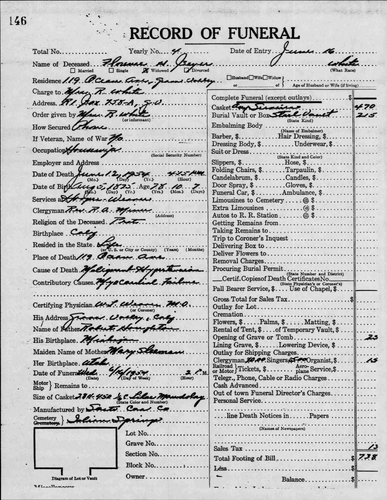 146
RECORD OF FUNERAL
Total No. Yearly No. 4 Date of Entry June 16
Name of Deceased Florence N. White
Married Single Widowed Divorced (What Race)
Residence 119 Ocean Ave Husband Wife Widow
Charge to R. White (Age of Husband or Wife)
Address R1 Box 755-A, G.W.
Order given by R. White
(or informant)
How Secured Phone
If Veteran, Name of War No
Occupation Housewife
(Social Security Number)
Employer and Address
Date of Death June 12, 1954 4:45 P.M.
(Mo.) (Day) (Yr.) (Hour)
Date of Birth Aug 5, 1875 Age 78 10 7
(Mo.) (Day) (Yr.) (Yrs.) (Mos.) (Days)
Services at Weaver
Clergyman Rev. R.A.
(Address)
Religion of the Deceased Prot
Birthplace Colo
Resided in the State Life
(or U. S. if City or County) (Years) (Months)
Place of Death 119 Ocean Ave
Cause of Death Malignant Hypertension
Contributory Cause Myocardial Failure
Certifying Physician Weaver M.D.
(or Coroner)
His Address
Name of Father Robert Houghton
His Birthplace Michigan
Maiden Name of Mother Mary
Her Birthplace Utah
Date of Funeral Wed 6/16/1954 2 P.M.
(Date) (Day of Week) (Hour)
Motor Ship Remains to
Size of Casket
(State Color and Number)
Manufactured by Casket Co.
Cemetery Springs
Crematory
Lot No.
Grave No.
Section No.
Block No.
Owner
Diagram of Lot or Vault
Complete Funeral (except outlays) $
Casket 470
Burial Vault or Box Steel Vault 215
(State Kind)
Embalming Body
(Name of Embalmer)
Barber, $ Hair Dressing, $
Dressing Body, $ Underwear, $
Suit or Dress
(State Kind and Color)
Slippers, $ Hose, $
Folding Chairs, $ Tarpaulin, $
Candelabrum, $ Candles, $
Door Spray, $ Gloves, $
Funeral Car, $ Ambulance, $
Limousines to Cemetery @ $
Extra Limousines @ $
Autos to R. R. Station @ $
Getting Remains
Taking Remains to
Trip to Coroner's Inquest
Delivering Box to
Deliver Flowers to
Removal Charges
Procuring Burial Permit
(State Number and District)
Certif. Copies of Death Certificates No.
(State Physician's or Coroner's)
Pall Bearer Service, $ Use of Chapel, $
Gross Total for Sales Tax $
Outlay for Lot
Cremation
Flowers, $ Palms, $ Matting, $
Rental of Tent, $ of Temporary Vault, $
Opening Grave or Tomb 25
Lining Grave, $ Lowering Device, $
Outlay for Shipping Charges
Clergyman Singers Organist, $ 15
Railroad or Motor Tickets, $ Aeroplane Service, $
Telegr., Phone, Cable or Radio Charges
Cash Advanced
Out of town Funeral Director's Charges
Personal Service
line Death Notices in Papers
(Names of Newspapers)
Sales Tax 13
Total Footing of Bill $ 738
Less
Balance $